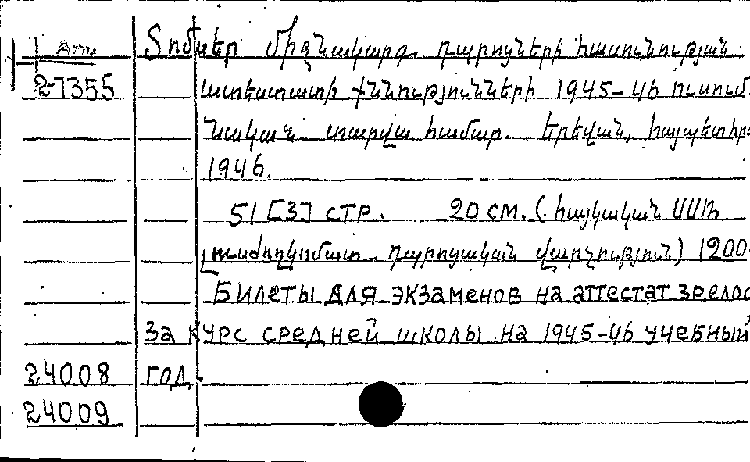 1 Տոմսեր միջնակարգ դպրոցների հասունության
2-7355 ատեստատի քննությունների 1945-46 ուսում
նական տարվա համար. Երևան, հայպետհր
1946.
51 [3] стр. 20 см. (Հայկական ՍՍՌ
լուսժողկոմատ. դպրոցական վարչություն) 1200
Билеты для экзаменов на аттестат зрелос
за курс средней школы на 1945-46 учебный
24008 год.
24009